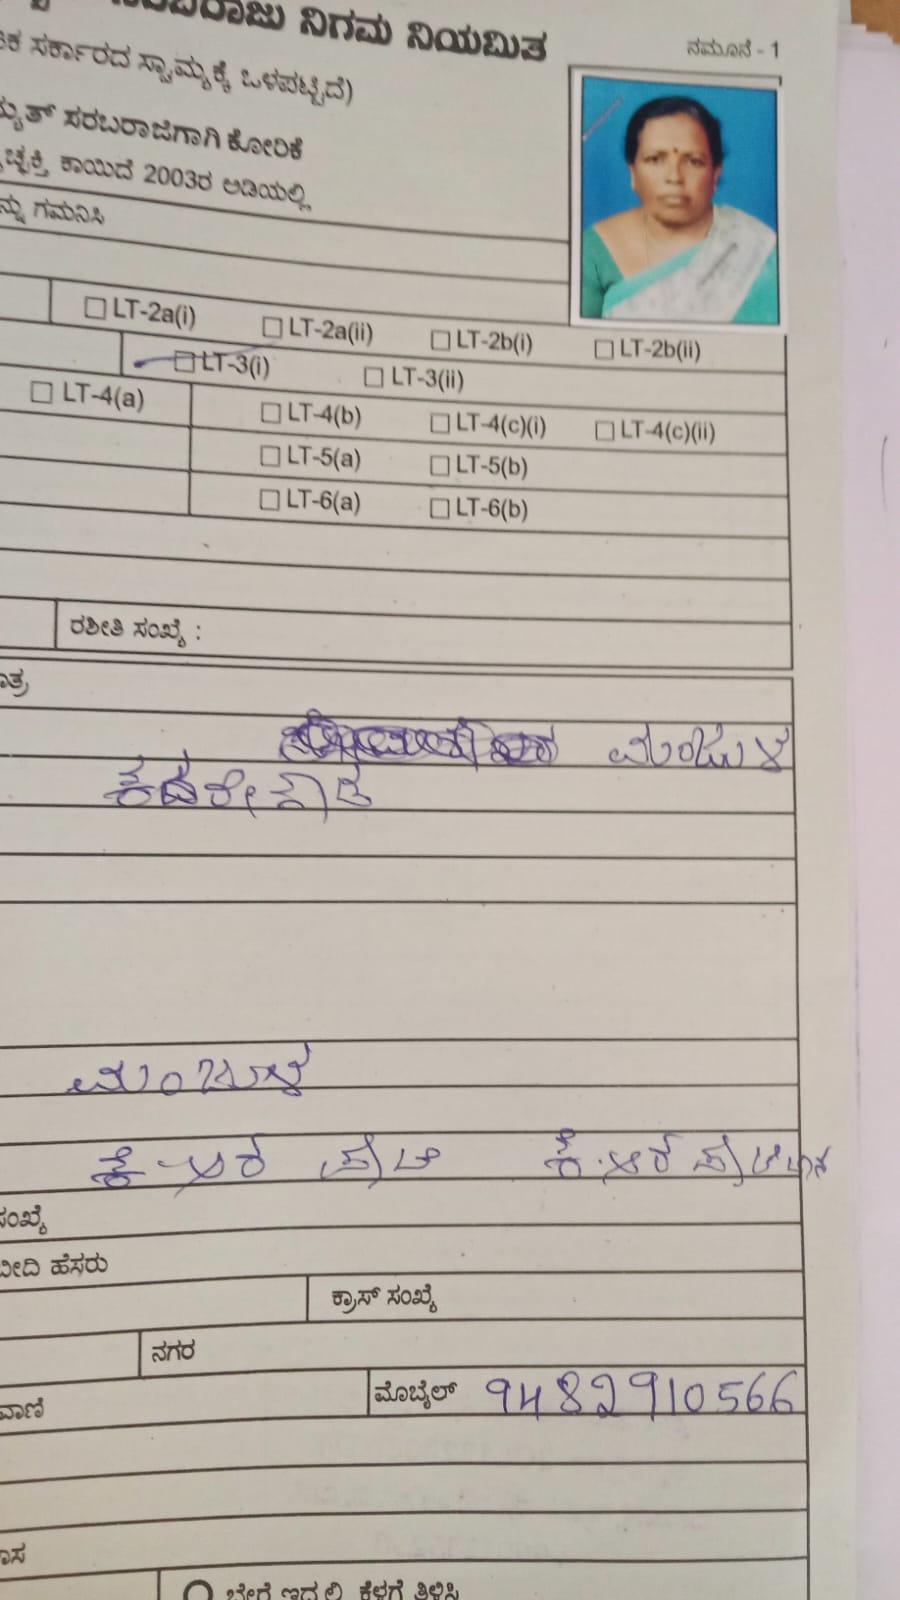 ನಿಗಮ ನಿಯಮಿತ
ನಮೂನೆ - 1
ಸರ್ಕಾರದ ಸ್ವಾಮ್ಯಕ್ಕೆ ಒಳಪಟ್ಟಿದೆ)
ಸರಬರಾಜಿಗಾಗಿ ಕೋರಿಕೆ
ಕಾಯಿದೆ 2003ರ ಅಡಿಯಲ್ಲಿ
ಗಮನಿಸಿ
LT-2a(i) LT-2a(ii) LT-2b(i) LT-2b(ii)
LT-3(i) LT-3(ii)
LT-4(a) LT-4(b) LT-4(c)(i) LT-4(c)(ii)
LT-5(a) LT-5(b)
LT-6(a) LT-6(b)
ರಶೀತಿ ಸಂಖ್ಯೆ :
ಮಂಜುಳ
ಮಂಜುಳ
ಕೆ.ಆರ್ ಪೇಟೆ
ಸಂಖ್ಯೆ
ಬೀದಿ ಹೆಸರು
ಕ್ರಾಸ್ ಸಂಖ್ಯೆ
ನಗರ
ಮೊಬೈಲ್ 9482910566
ಬೇರೆ ಇದ್ದಲ್ಲಿ ಕೆಳಗೆ ತಿಳಿಸಿ